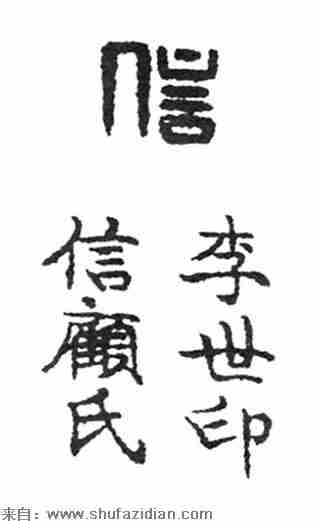 信
李世印
信顧氏
来自：www.shufazidian.com